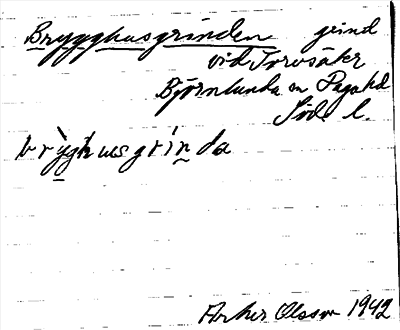 Brygghusgrinden grind
vid Torvsäker
Björnlunda sn Daga hd
Söd. l.
brỳghusgrìnda
Olsson 1942